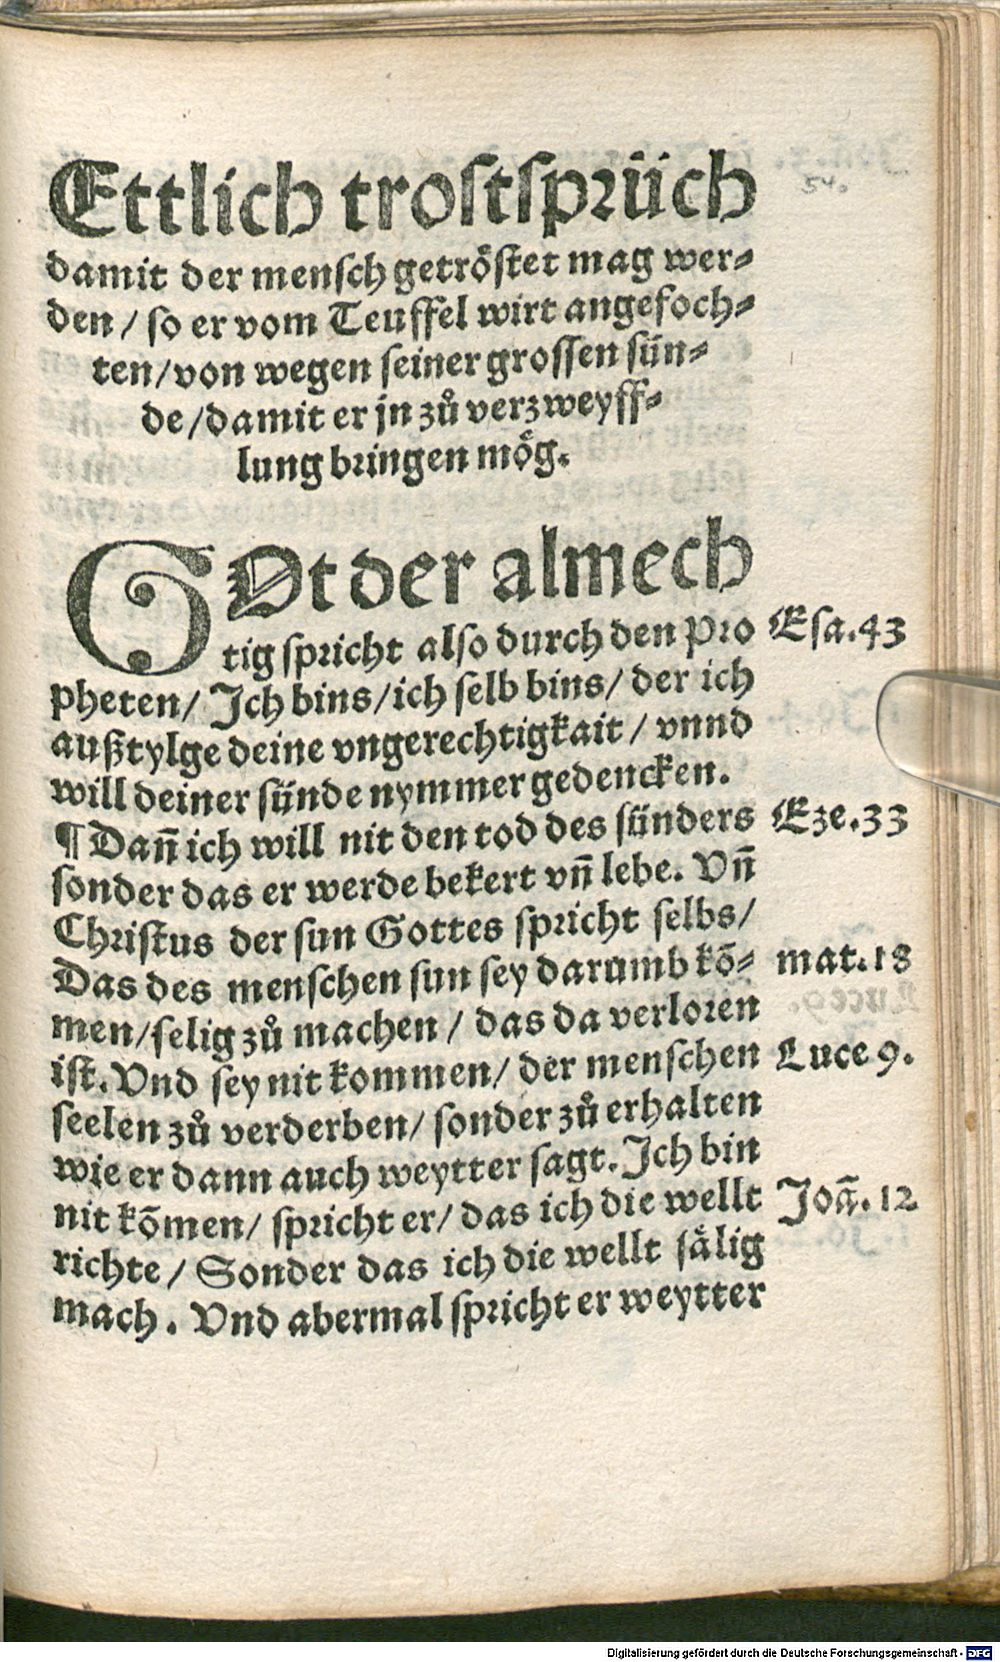 Ettlich trostsprüch
54.
damit der mensch getröstet mag wer⸗
den / so er vom Teuffel wirt angefoch⸗
ten/von wegen seiner grossen sün⸗
de/damit er jn zů verzweyff⸗
lung bringen mög.
GOt der almech
tig spricht also durch den Pro
Esa.43
pheten/ Jch bins/ich selb bins/ der ich
außtylge deine vngerechtigkait / vnnd
will deiner sünde nymmer gedencken.
¶ Dañ ich will nit den tod des sünders
Eze.33
sonder das er werde bekert vñ lebe. Vñ
Christus der sun Gottes spricht selbs/
Das des menschen sun sey darumb kõ⸗
mat.18
men/selig zů machen / das da verloren
ist. Vnd sey nit kommen/ der menschen
Luce 9.
seelen zů verderben/ sonder zů erhalten
wie er dann auch weytter sagt. Jch bin
nit kõmen/ spricht er/ das ich die wellt
Joã. 12
richte / Sonder das ich die wellt sälig
mach. Vnd abermal spricht er weytter
Digitalisierung gefördert durch die Deutsche Forschungsgemeinschaft - DFG